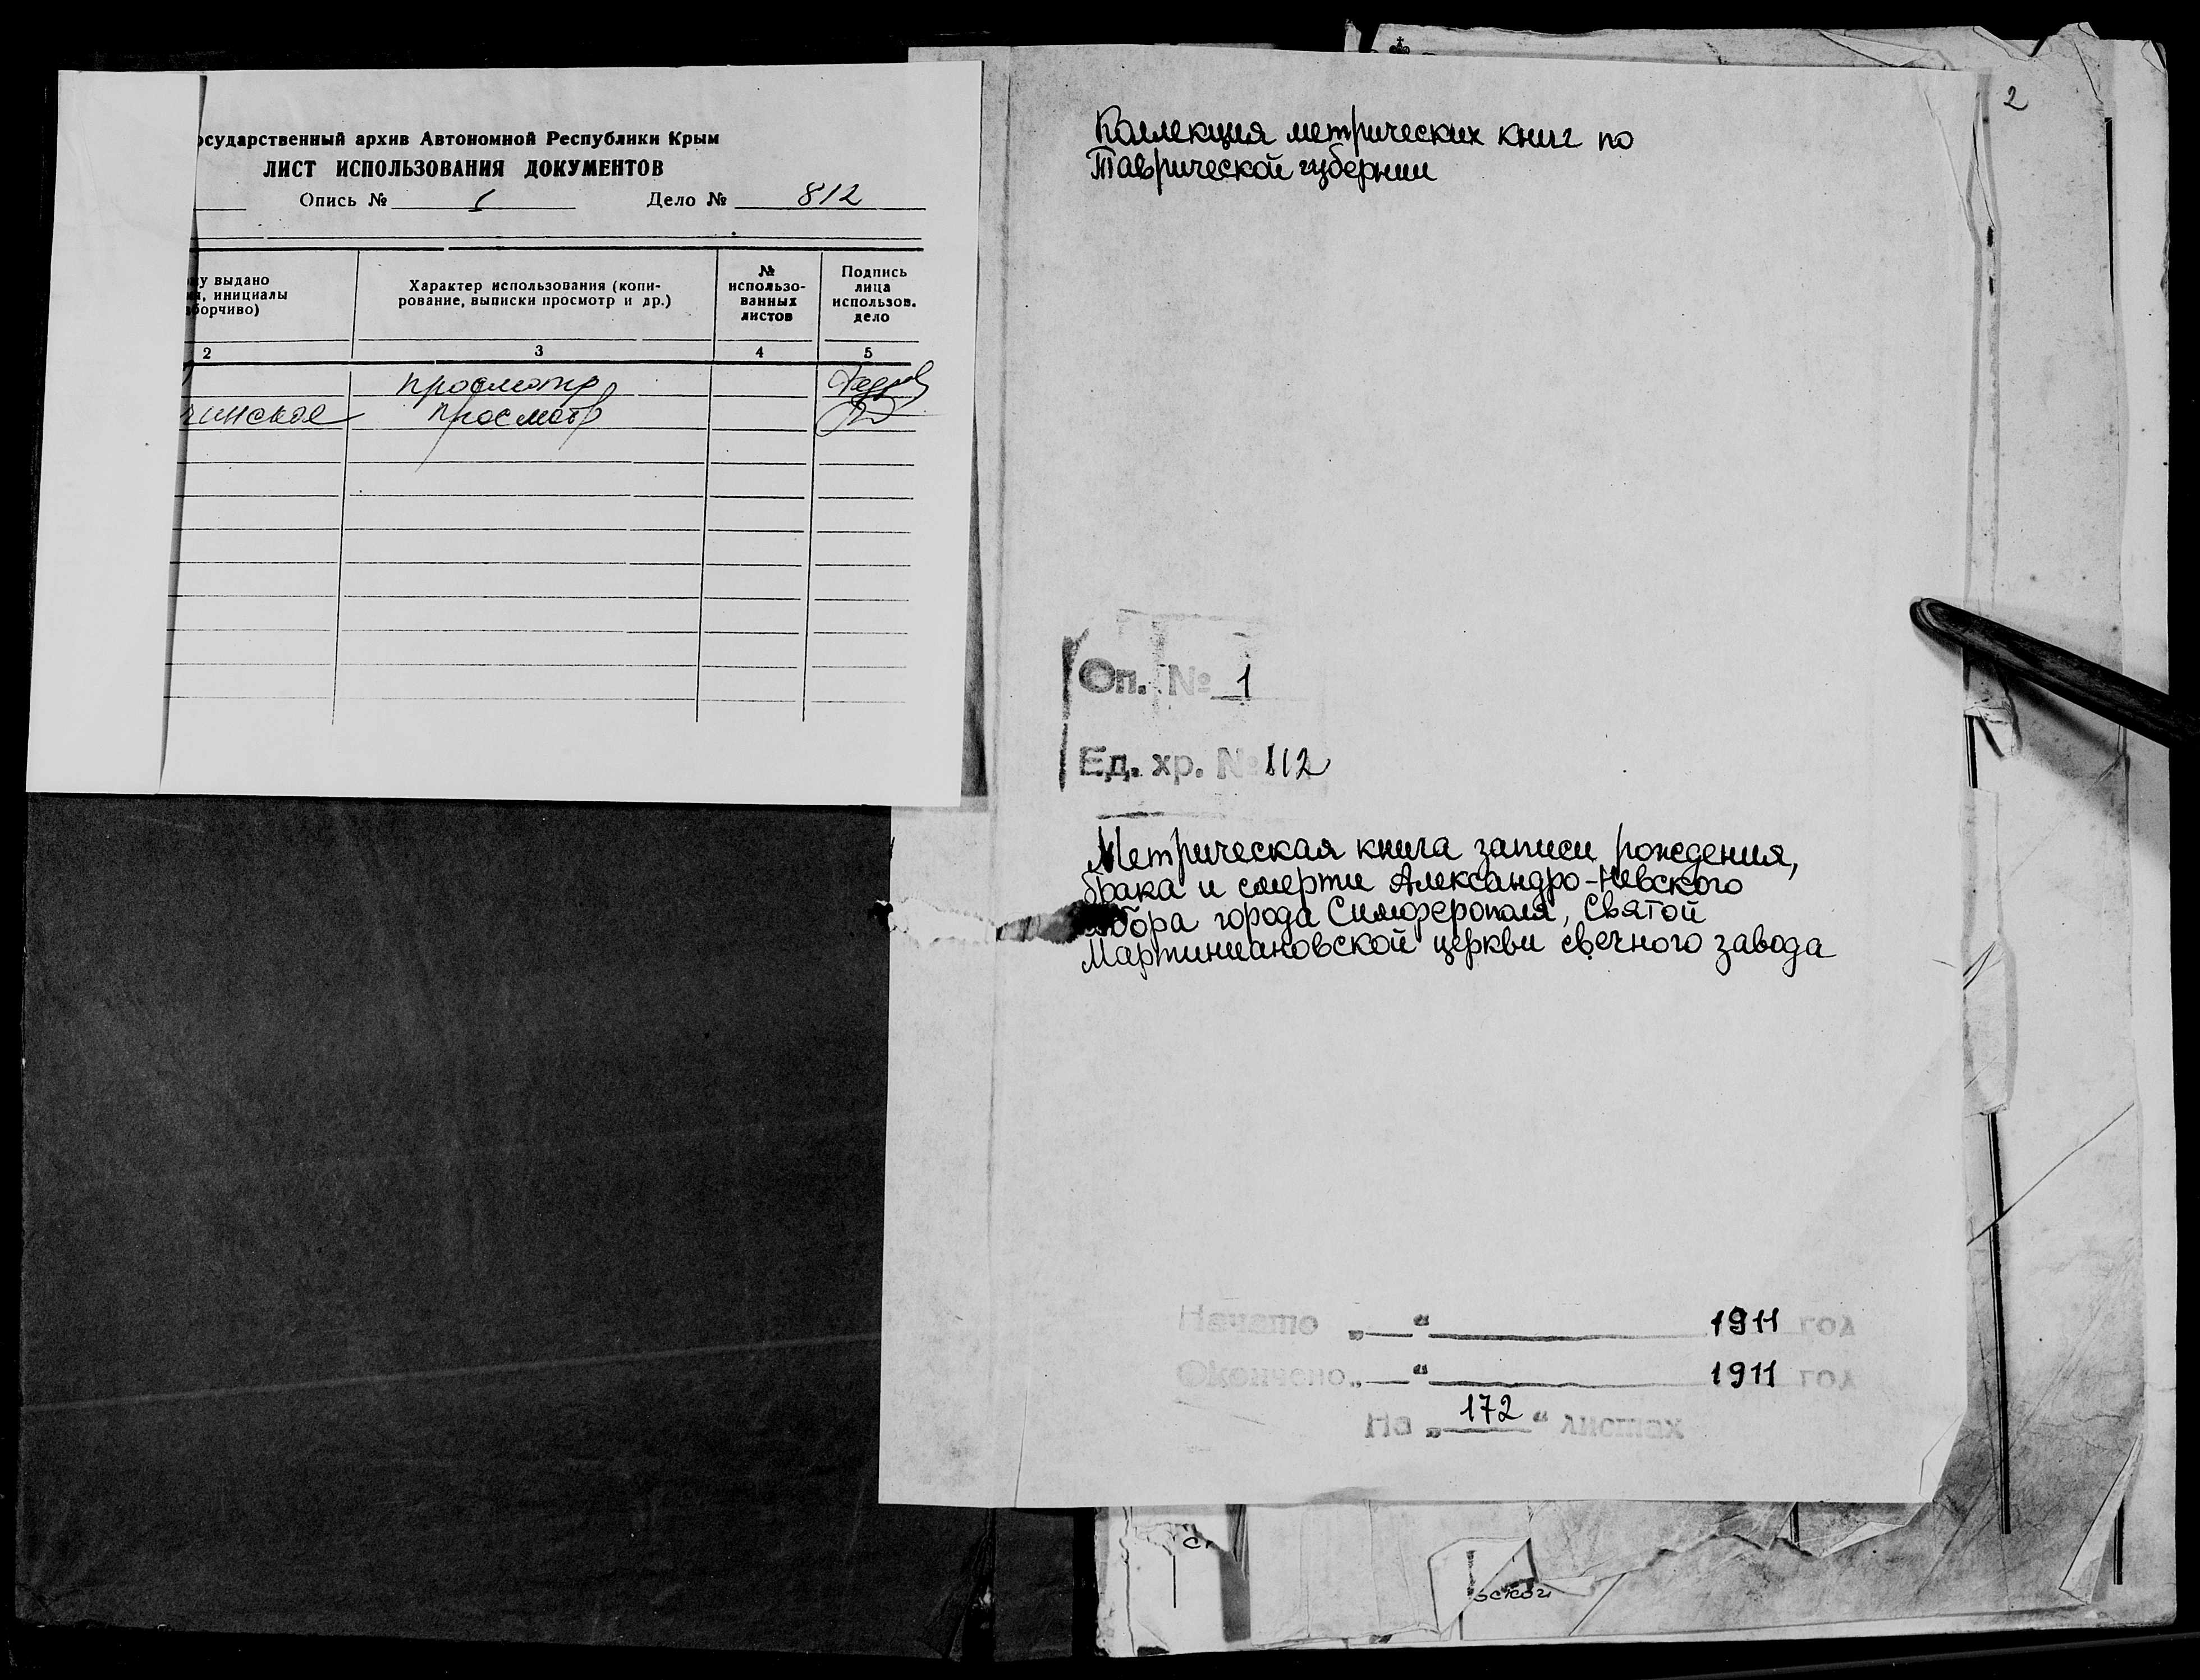 осударственный архив Автономной Республики Крым
ЛИСТ ИСПОЛЬЗОВАНИЯ ДОКУМЕНТОВ
Опись № 1 Дело № 812
у выдано
, инициалы
борчиво)
Характер использования (копи-
рование, выписки просмотр и др.)
№
использо-
ванных
листов
Подпись
лица
использов.
дело
2 3 4 5
просмотр
чинская просмотр
2
Коллекция метрических книг по
Таврической губернии
Оп. № 1
Ед. хр. № 812
Метрическая книга записи рождения,
брака и смерти Александро-Невского
бора города Симферополя, Святой
Мартиниановской церкви свечного завода
Начато „—“ 1911 год
Окончено „—“ 1911 год
На „172“ листах
ской